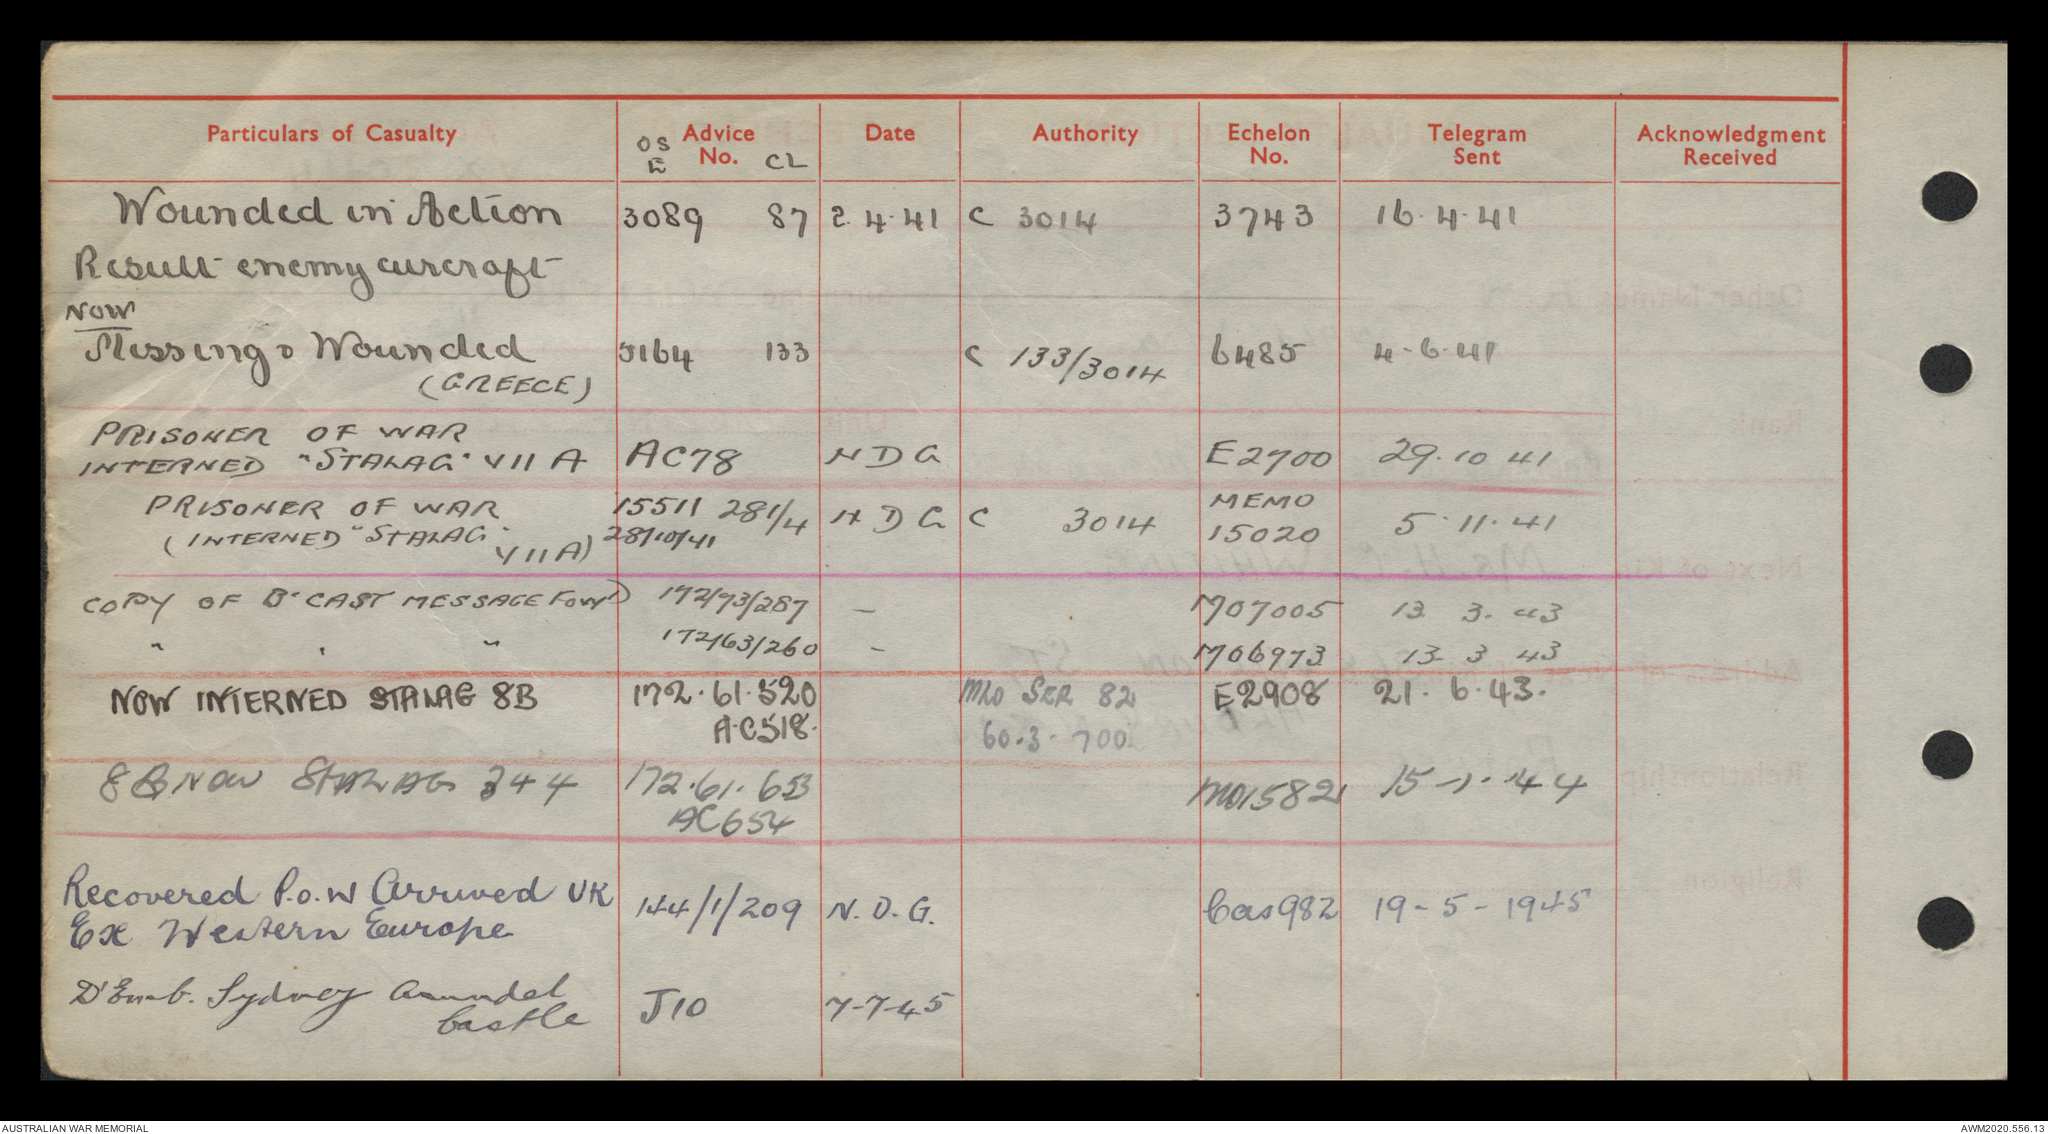 Particulars of Casualty OS E Advice No. CL Date Authority Echelon No. Telegram Sent Acknowledgment Received
Wounded in Action 3089 87 2.4.41 C 3014 3743 16.4.41
Result enemy aircraft
NOW
Missing & Wounded 5164 133 C 133/3014 6485 4-6-41
(GREECE)
PRISONER OF WAR
INTERNED "STALAG" VII A AC78 N D G E2700 29.10 41
PRISONER OF WAR 15511 281/4 N D G C 3014 MEMO
(INTERNED "STALAG" 28/10/41 15020 5.11.41
VII A)
COPY OF B'CAST MESSAGE FOW'D 172/93/287 – MO7005 13 3. 43
" " " 172/63/260 – MO6973 13 3 43
NOW INTERNED STALAG 8B 172.61.520 MLO SER 82 E2908 21.6.43.
AC518. 60.3.700.
8B NOW STALAG 344 172.61.653 MO15821 15-1-44
AC654
Recovered P.o.W Arrived UK 144/1/209 N.D.G. Cas982 19-5-1945
Ex Western Europe
D'Emb. Sydney Arundel J10 7-7-45
Castle
AUSTRALIAN WAR MEMORIAL AWM2020.556.13